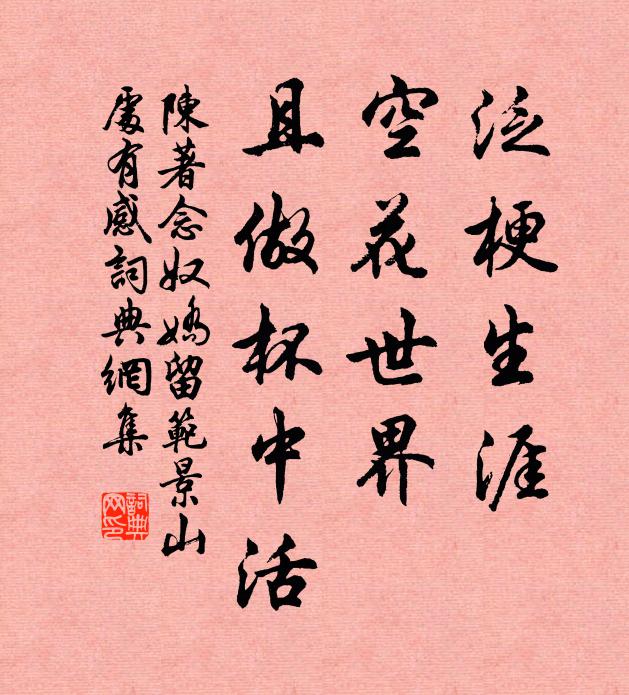 泛梗生涯
空花世界
且做杯中活
陳著念奴嬌留範景山
處有感詞典網集
詞典
网印